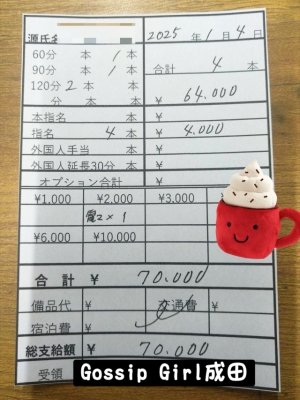 源氏名
2025年1月4日
60分 本 1本
90分 本 1本
合計 4本
120分 2本 本
分 本 本
¥ 64.000
本指名 ¥
指名 4本 ¥ 4.000
外国人手当 本 ¥
外国人延長30分 本 ¥
オプション合計 ¥
¥1,000 ¥2,000 ¥3,000
×1
¥6,000 ¥10,000
合計 ¥ 70.000
備品代 ¥ 交通費 ¥
宿泊費 ¥
総支給額 ¥ 70.000
受領
Gossip Girl成田